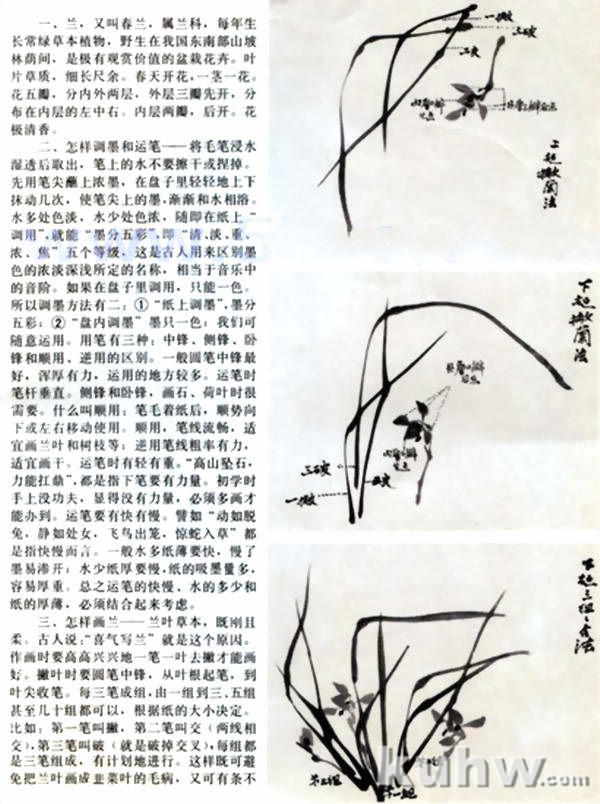 一、兰，又叫春兰，属兰科，每年生
长常绿草本植物，野生在我国东南部山坡
林荫间，是极有观赏价值的盆栽花卉。叶
片草质，细长尺余。春天开花，一茎一花。
花五瓣，分内外两层，外层三瓣先开，分
布在内层的左中右。内层两瓣，后开。花
极清香。
二、怎样调墨和运笔——将毛笔浸水
湿透后取出，笔上的水不要擦干或捏掉。
先用笔尖蘸上浓墨，在盘子里轻轻地上下
抹动几次，使笔尖上的墨，渐渐和水相溶。
水多处色淡，水少处色浓，随即在纸上“
调用”，就能“墨分五彩”，即“清、淡、重、
浓、焦”五个等级，这是古人用来区别墨
色的浓淡深浅所定的名称，相当于音乐中
的音阶。如果在盘子里调用，只能一色。
所以调墨方法有二：①“纸上调墨”，墨分
五彩；②“盘内调墨”墨只一色；我们可
随意运用。用笔有三种：中锋、侧锋、卧
锋和顺用、逆用的区别。一般圆笔中锋最
好，浑厚有力，运用的地方较多。运笔时
笔杆垂直。侧锋和卧锋，画石、荷叶时很
需要。什么叫顺用：笔毛着纸后，顺势向
下或左右移动使用。顺用，笔线流畅，适
宜画兰叶和树枝等；逆用笔线粗率有力，
适宜画干。运笔时有轻有重。“高山坠石，
力能扛鼎”，都是指下笔要有力量。初学时
手上没功夫，显得没有力量，必须多画才
能办到。运笔要有快有慢。譬如“动如脱
兔，静如处女，飞鸟出笼，惊蛇入草”都
是指快慢而言。一般水多纸薄要快，慢了
墨易渗开；水少纸厚要慢，纸的吸墨量多，
容易厚重。总之运笔的快慢、水的多少和
纸的厚薄，必须结合起来考虑。
三、怎样画兰——兰叶草本，既刚且
柔。古人说：“喜气写兰”就是这个原因。
作画时要高高兴兴地一笔一叶去撇才能画
好。撇叶时要圆笔中锋，从叶根起笔，到
叶尖收笔。每三笔成组，由一组到三、五组
甚至几十组都可以，根据纸的大小决定。
比如：第一笔叫撇，第二笔叫交（两线相
交），第三笔叫破（就是破掉交叉），每组都
是三笔组成，有计划地进行。这样既可避
免把兰叶画成韭菜叶的毛病，又可有条不
一撇
二交
三破
上起撇兰法
下起撇兰法
三破
二交
一撇
第二组
第三组
第一组
kuhw.com